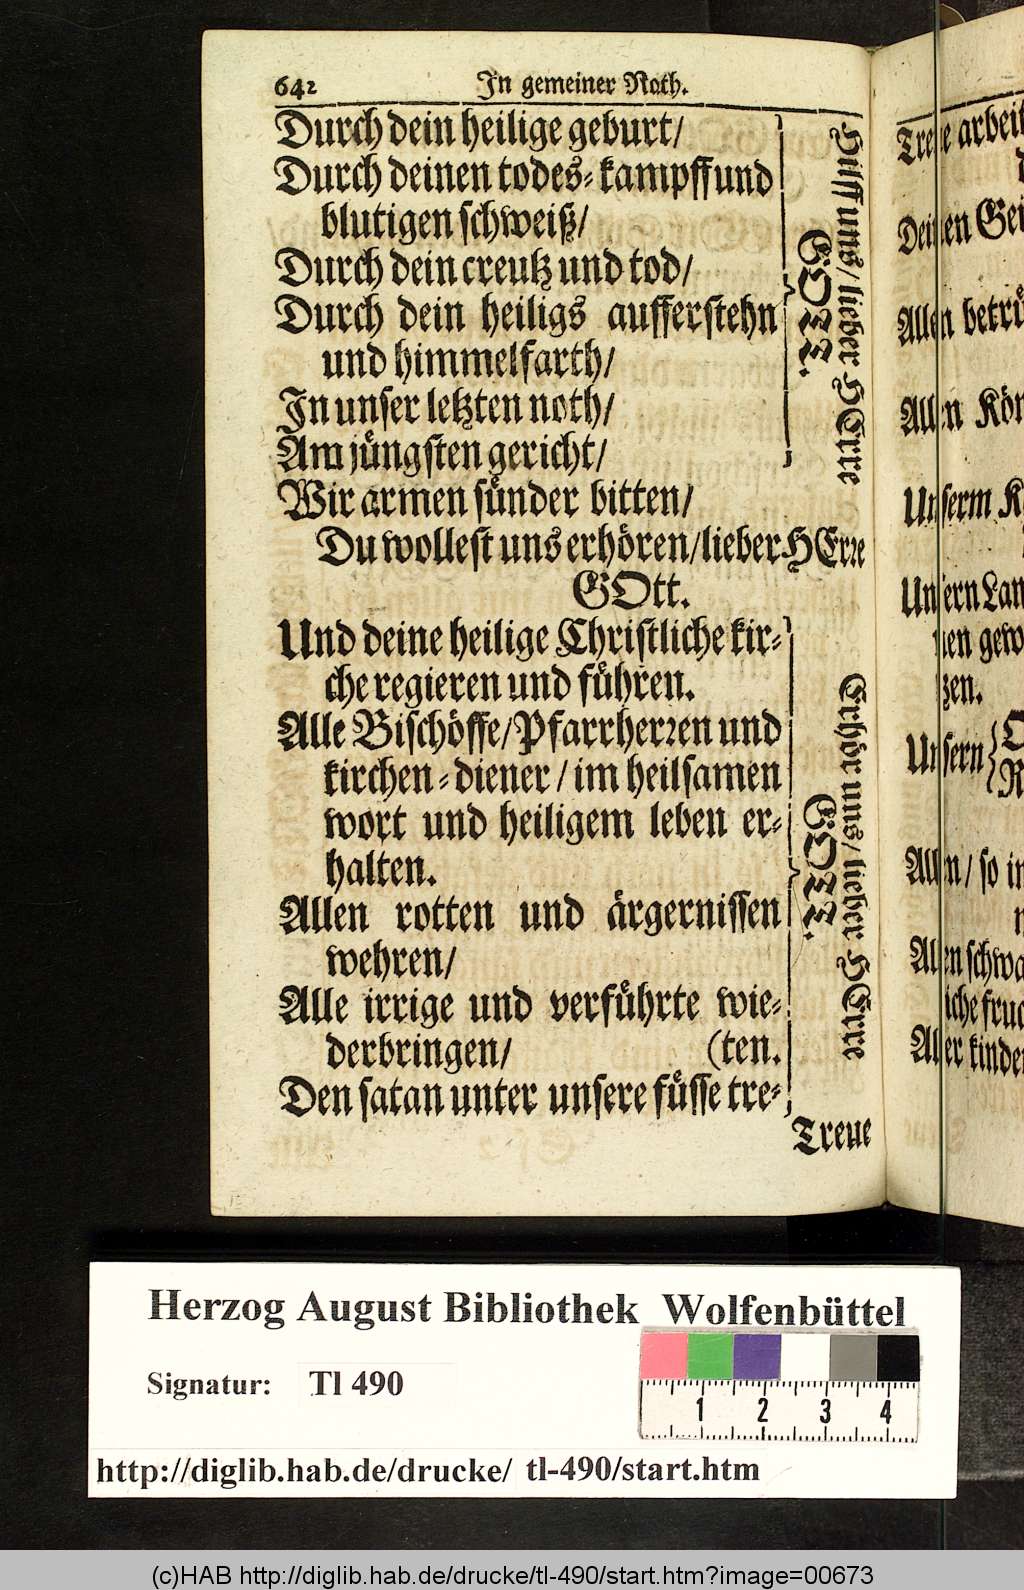 642 In gemeiner Noth.
Durch dein heilige geburt/
Durch deinen todes-kampff und
blutigen schweiß/
Durch dein creutz und tod/
Durch dein heiligs aufferstehn
und himmelfarth/
In unser letzten noth/
Am jüngsten gericht/
Hilff uns/ lieber HErre
GOTT.
Wir armen sünder bitten/
Du wollest uns erhören/lieber HErꝛe
GOtt.
Und deine heilige Christliche kir-
che regieren und führen.
Alle Bischöffe/Pfarrherꝛen und
kirchen-diener/ im heilsamen
wort und heiligem leben er-
halten.
Allen rotten und ärgernissen
wehren/
Alle irrige und verführte wie-
derbringen/ (ten.
Den satan unter unsere füsse tre-
Erhör uns/ lieber HErre
GOTT.
Treue
Treue arbeit
Deinen Gei
Allen betrü
Allen Kön
Unserm K
Unsern Lan
nen gew
tzen.
Unsern
Allen/ so in
Allen schwa
liche fruc
Aller kinder
Herzog August Bibliothek Wolfenbüttel
Signatur: Tl 490
1 2 3 4
http://diglib.hab.de/drucke/ tl-490/start.htm
(c)HAB http://diglib.hab.de/drucke/tl-490/start.htm?image=00673